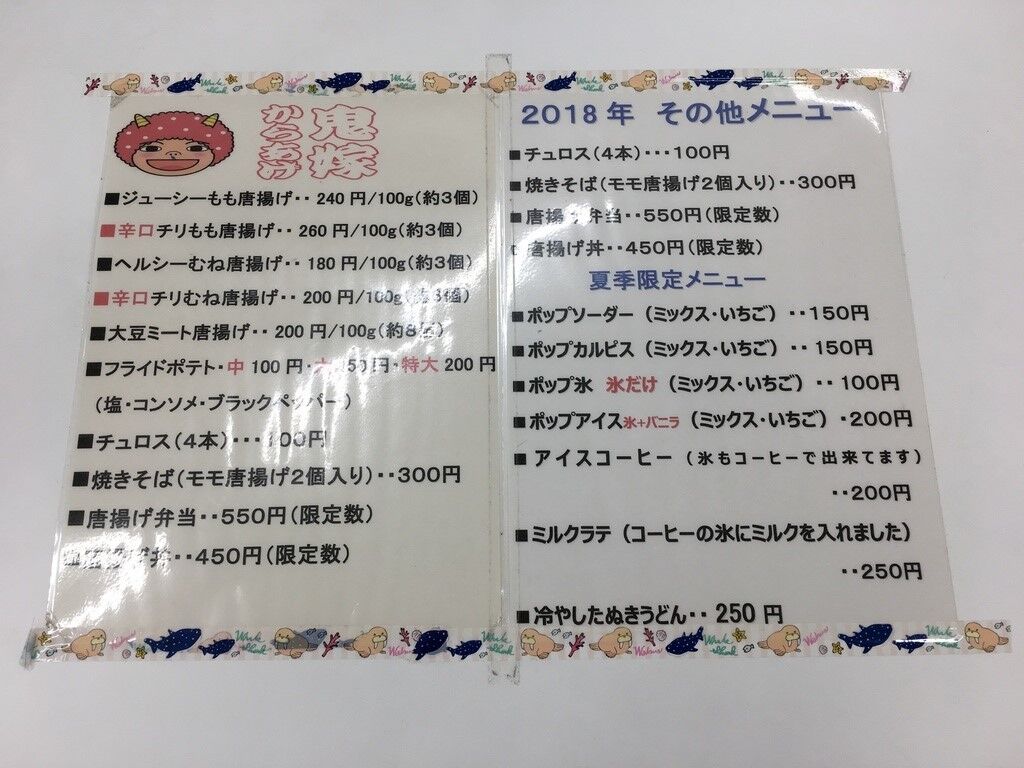 鬼嫁
からあげ
■ジューシーもも唐揚げ・・240円/100g(約3個)
■辛口チリもも唐揚げ・・260円/100g(約3個)
■ヘルシーむね唐揚げ・・180円/100g(約3個)
■辛口チリむね唐揚げ・・200円/100g(約3個)
■大豆ミート唐揚げ・・200円/100g(約8個)
■フライドポテト・中100円・大150円・特大200円
(塩・コンソメ・ブラックペッパー)
■チュロス(4本)・・・100円
■焼きそば(モモ唐揚げ2個入り)・・300円
■唐揚げ弁当・・550円(限定数)
■唐揚げ丼・・450円(限定数)
2018年 その他メニュー
■チュロス(4本)・・・100円
■焼きそば(モモ唐揚げ2個入り)・・300円
■唐揚げ弁当・・550円(限定数)
■唐揚げ丼・・450円(限定数)
夏季限定メニュー
■ポップソーダー(ミックス・いちご)・・150円
■ポップカルピス(ミックス・いちご)・・150円
■ポップ氷 氷だけ(ミックス・いちご)・・100円
■ポップアイス氷+バニラ(ミックス・いちご)・200円
■アイスコーヒー(氷もコーヒーで出来てます)
・・200円
■ミルクラテ(コーヒーの氷にミルクを入れました)
・・250円
■冷やしたぬきうどん・・250円